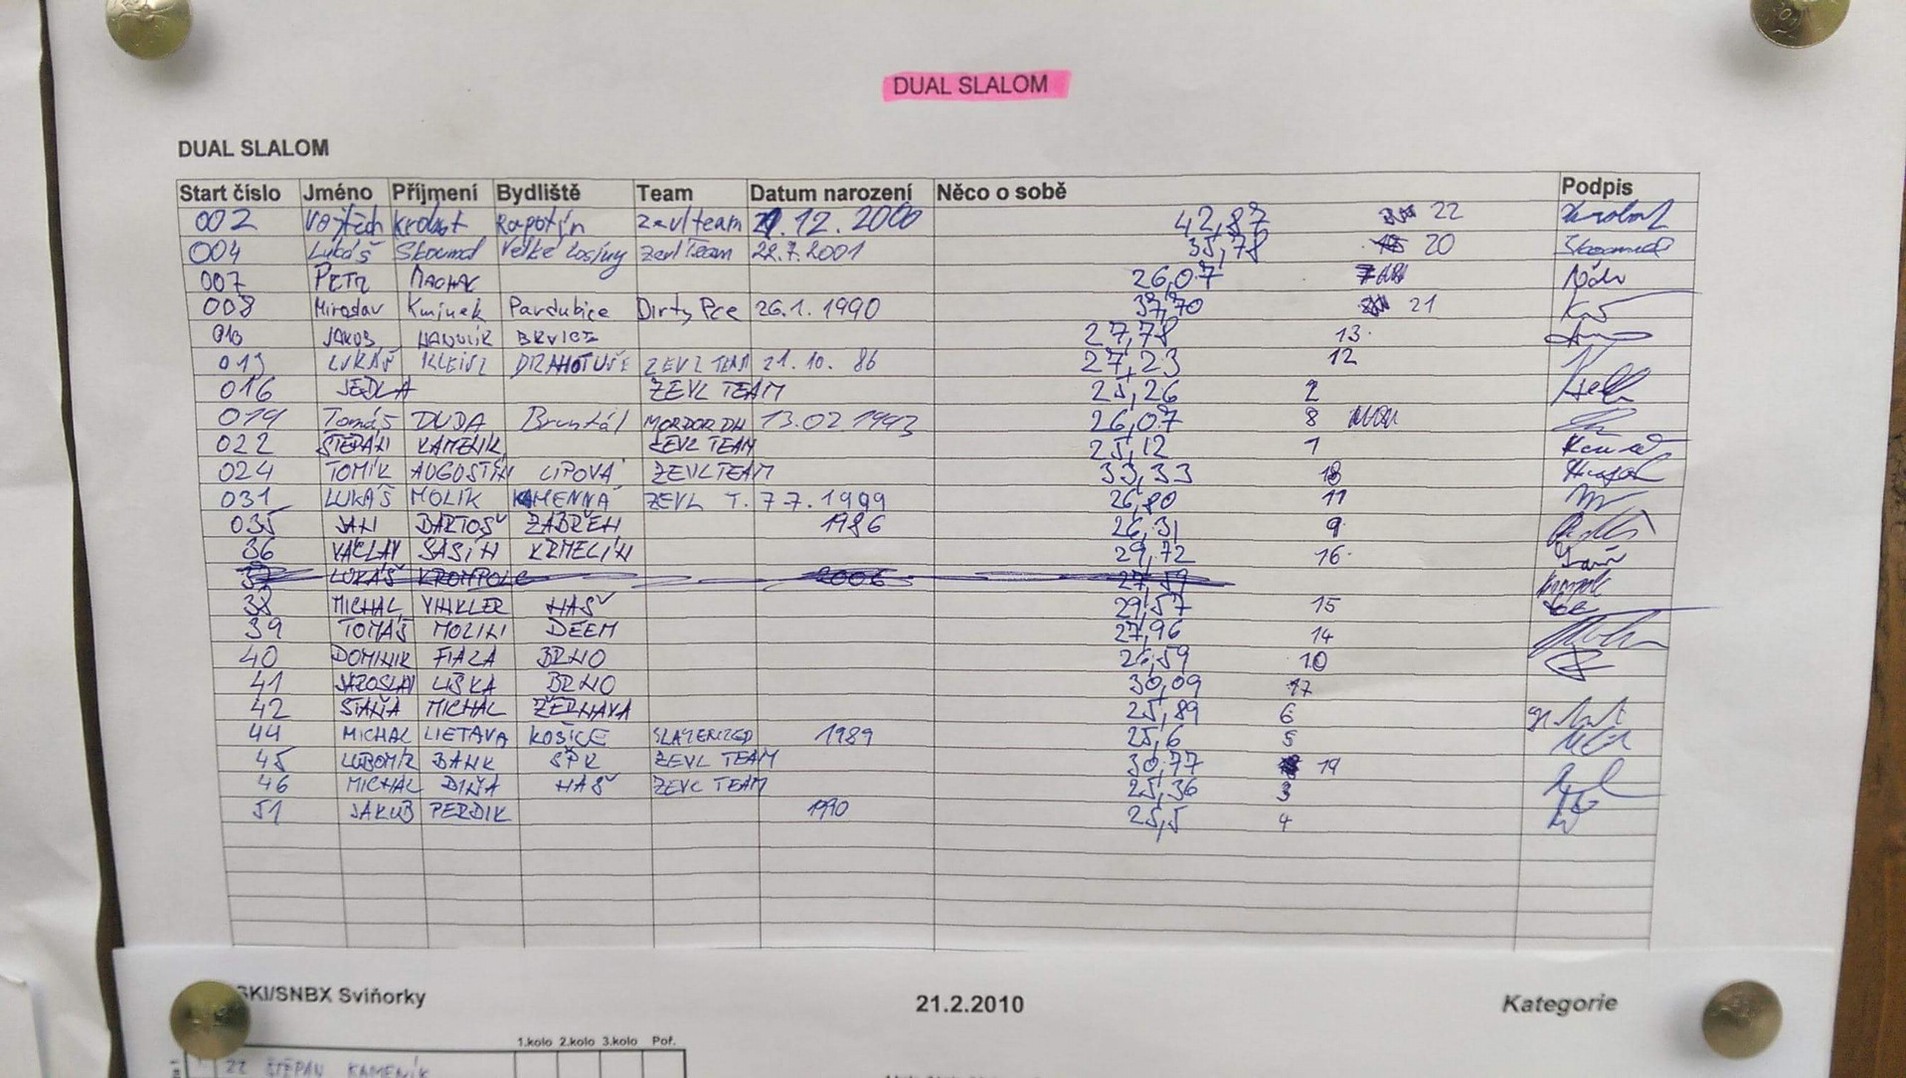 DUAL SLALOM
DUAL SLALOM
Start číslo Jméno Příjmení Bydliště Team Datum narození Něco o sobě Podpis
002 Vojtěch Krobot Rapotín Zevl team 21.12.2000 42,87 22
004 Lukáš Skoumal Velké Losiny Zevl Team 22.7.2001 35,78 20
007 PETR MACHAC 26,07
008 Miroslav Kmínek Pardubice Dirty Pce 26.1.1990 37,70 21
010 JAKUB 27,78 13.
013 LUKÁŠ KLEISL DRAHOTUŠE ZEVL TEAM 21.10.86 27,23 12
016 SEDLA ZEVL TEAM 25,26 2
019 Tomáš DUDA Bruntál MORDOR DH 13.02.1993 26,07 8
022 ŠTĚPÁN KAMENÍK ZEVL TEAM 25,12 1
024 TOMÍK AUGUSTÍN LIPOVÁ ZEVL TEAM 33,33 18
031 LUKÁŠ MOLÍK KAMENNÁ ZEVL T. 7.7.1999 26,80 11
035 JAN BARTOŠ ZÁBŘEH 1986 26,31 9
36 VÁCLAV SASÍN KRMELÍN 29,72 16.
37 LUKÁŠ KROMPOLC 2006 27,59
38 MICHAL VINKLER HÁŠ 29,57 15
39 TOMÁŠ MOLIN DEEM 27,96 14
40 DOMINIK FIALA BRNO 26,59 10
41 JAROSLAV LIŠKA BRNO 30,09 17
42 STAŇA MICHAL ŽERNAVA 25,89 6
44 MICHAL LIETAVA KOŠICE SLAYERIZED 1989 25,6 5
45 LUBOMÍR BANK ŠPK ZEVL TEAM 30,77 19
46 MICHAL DIŇA HÁŠ ZEVL TEAM 25,36 3
51 JAKUB PERDIK 1990 25,5 4
SKI/SNBX Sviňorky 21.2.2010 Kategorie
1.kolo 2.kolo 3.kolo Poř.
22 ŠTĚPÁN KAMENÍK